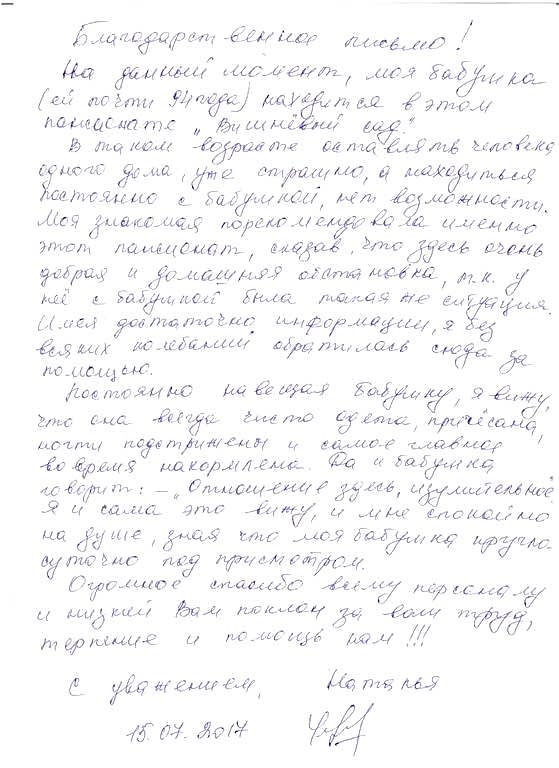 Благодарственное письмо!
На данный момент, моя бабушка
(ей почти 94 года) находится в этом
пансионате „Вишнёвый сад."
В таком возрасте оставлять человека
одного дома, уже страшно, а находиться
постоянно с бабушкой, нет возможности.
Моя знакомая порекомендовала именно
этот пансионат, сказав, что здесь очень
добрая и домашняя обстановка, т.к. у
неё с бабушкой была такая же ситуация.
Имея достаточно информации, я без
всяких колебаний обратилась сюда за
помощью.
Постоянно навещая бабушку, я вижу,
что она всегда чисто одета, причёсана,
ногти подстрижены и самое главное
во время накормлена. Да и бабушка
говорит: – „Отношение здесь, изумительное."
Я и сама это вижу, и мне спокойно
на душе, зная что моя бабушка кругло-
суточно под присмотром.
Огромное спасибо всему персоналу
и низкий Вам поклон за ваш труд,
терпение и помощь нам!!!
С уважением, Наталья
15.07.2017